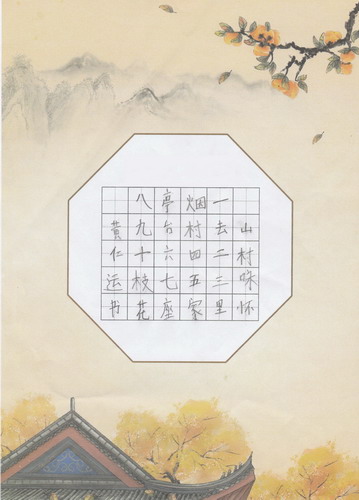 山村咏怀
一去二三里
烟村四五家
亭台六七座
八九十枝花
黄仁运书